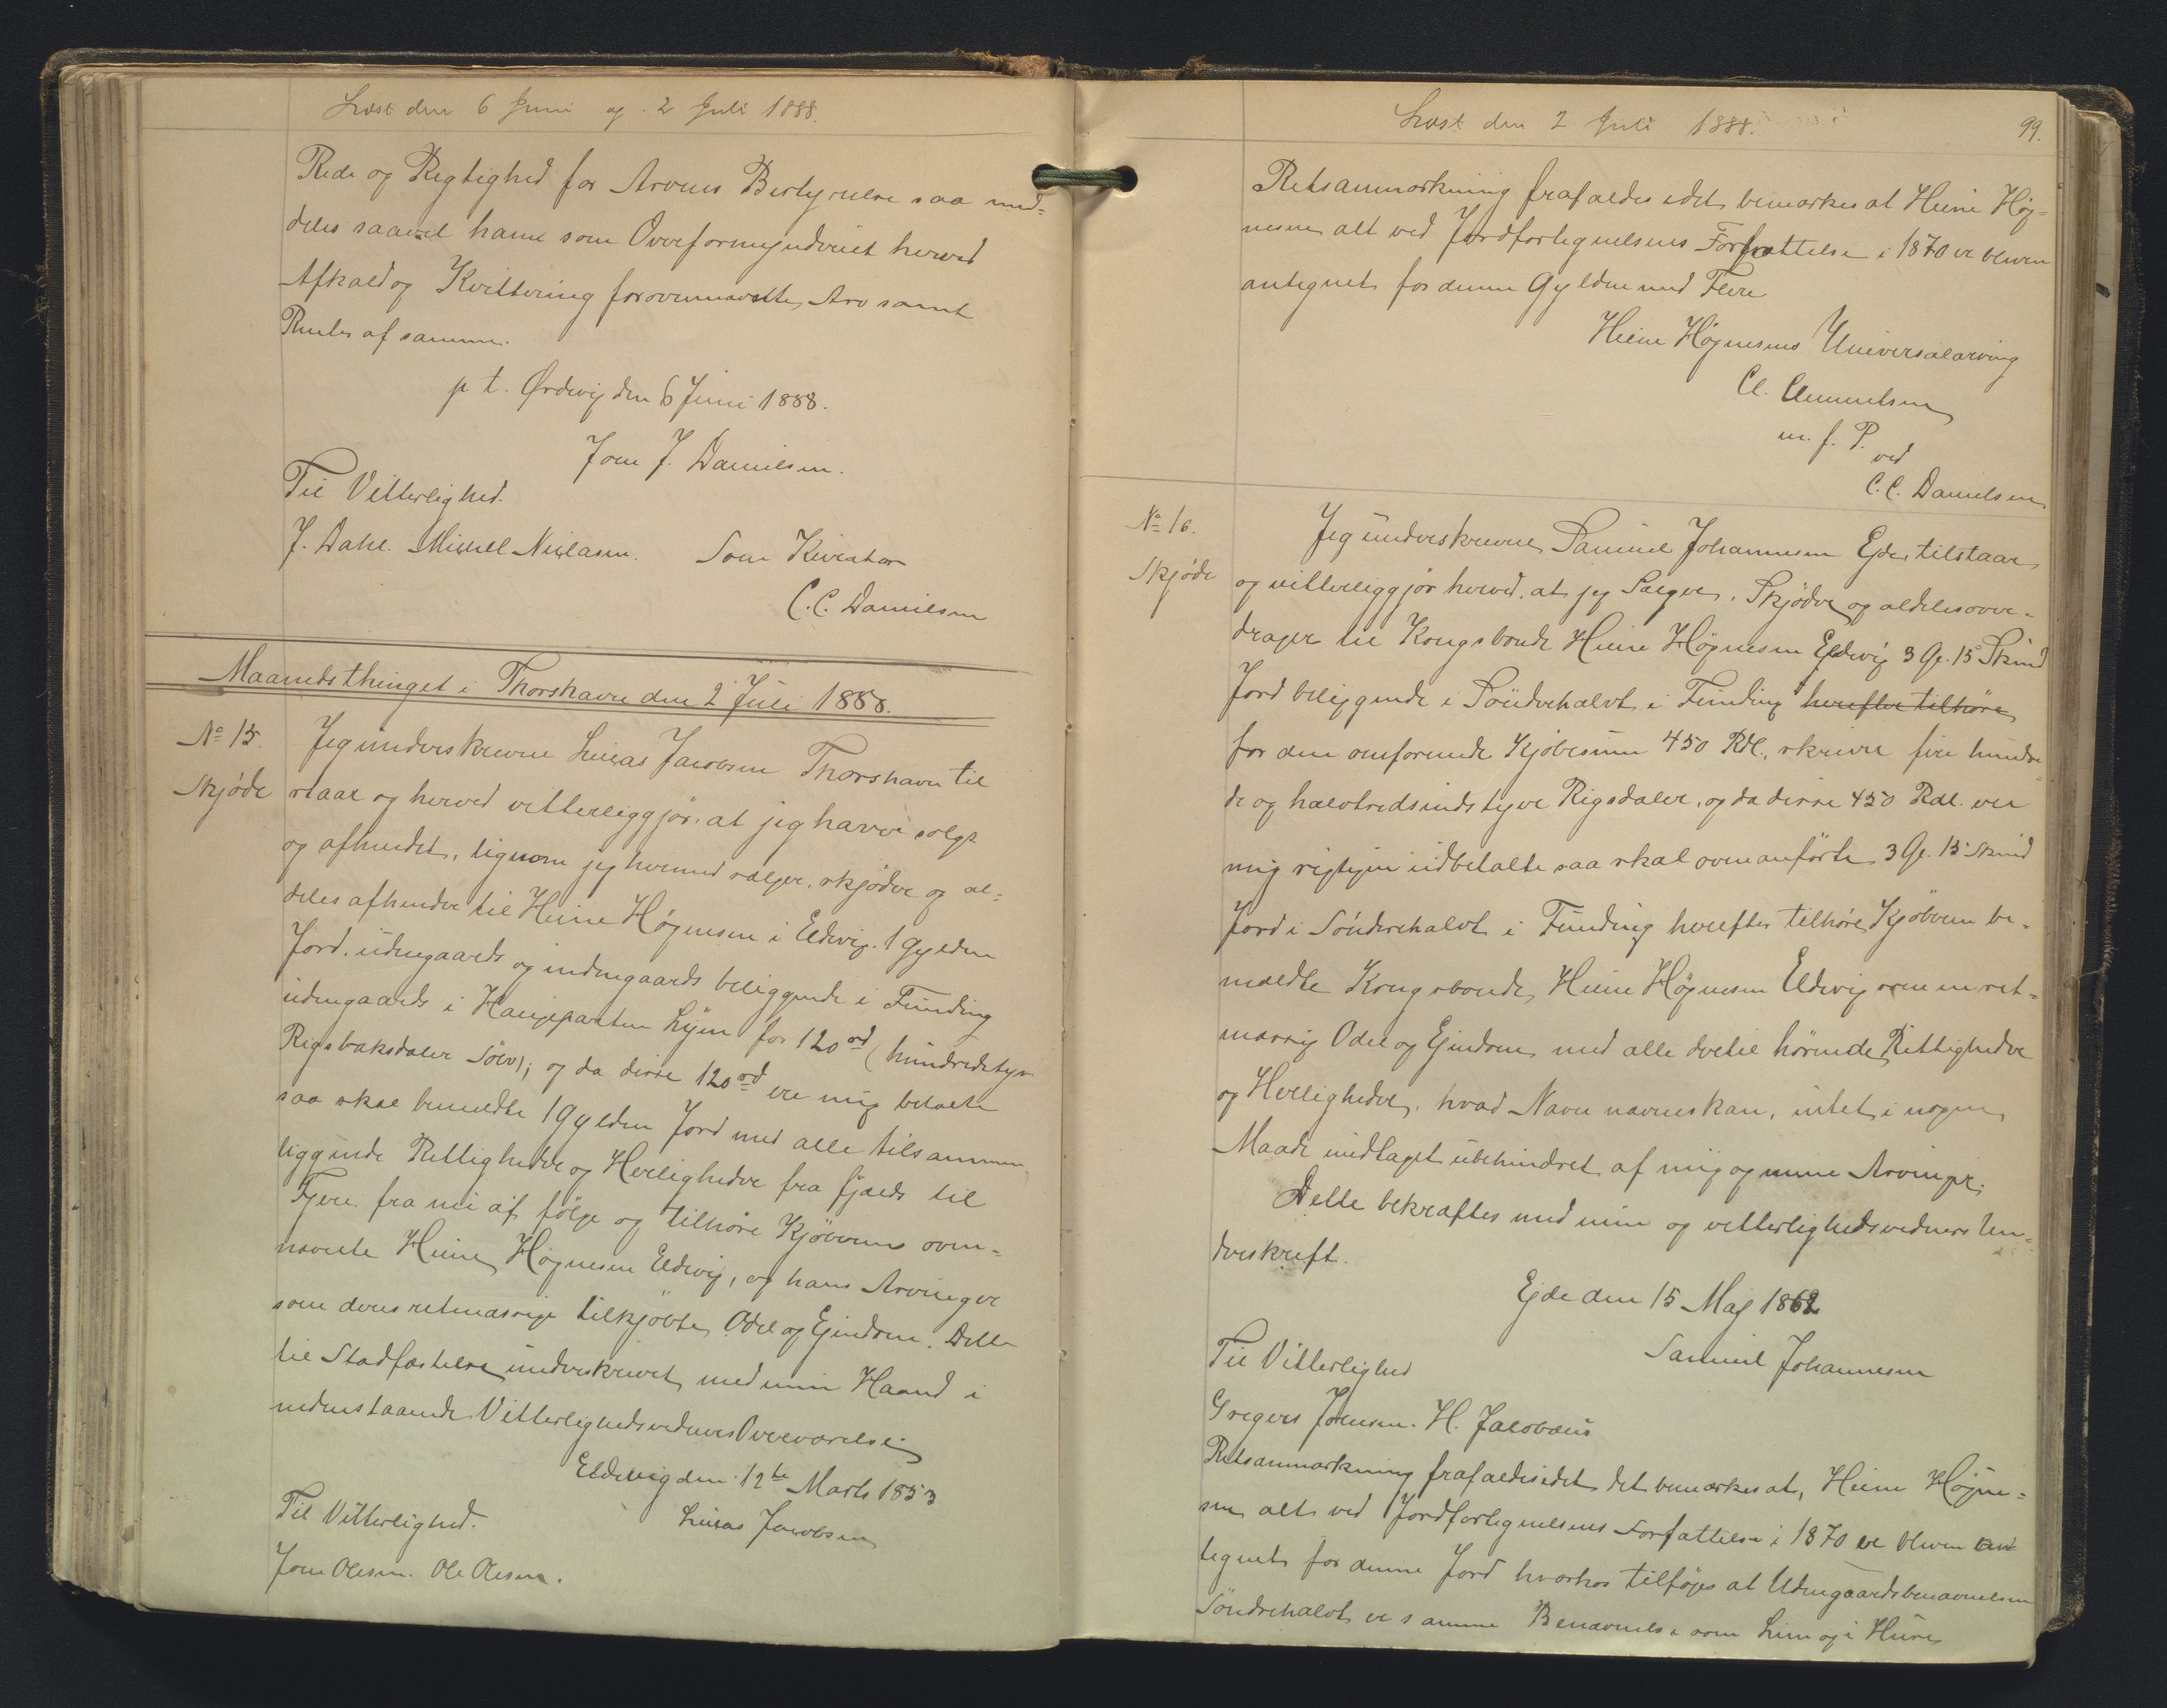 Læst den 6 Juni og 2 Juli 1888.
Rede og Rigtighed for Arvens Bestyrelse saa med=
deles saavel ham som Overformynderiet herved
Afkald og Kvittering for ovennævnte Arv samt
Renter af samme.
p. t. Ördevig den 6 Juni 1888.
Joen J. Danielsen.
Til Vitterlighed.
J. Dahl. Michel Niclasen. Som Kurator
C.C. Danielsen
Maanedsthinget i Thorshavn den 2 Juli 1888.
No 15. Jeg underskrevne Lucas Jacobsen Thorshavn til
Skjöde staar og herved vitterliggjör, at jeg haver solgt
og afhændet, ligesom jeg hermed sælger, skjöder og al=
deles afhænder til Heine Højnesen i Eldevig 1 Gylden
Jord, udengaards og indengaards beliggende i Funding
udengaards i Haugeparten Lijm for 120 rd (hundredetyve
Rigsbaksdaler Sölv); og da disse 120 rd ere mig betalte
saa skal bemeldte 1 Gylden Jord med alle tilsammen
liggende Rettigheder og Herligheder fra fjæld til
Fjere. fra nu af fölge og tilhöre Kjöberens oven=
nævnte Heine Højnesen Eldevig, og hans Arvinger
som deres retmæssige tilkjöbte Odel og Ejendom. Dette
til Stadfæstelse underskrevet med min Haand i
nedenstaaende Vitterlighedsvidners Overværelse
Eldevig den 12te Marts 1853
Til Vitterlighed. Lucas Jacobsen
Joen Olesen. Ole Olesen.
Læst den 2 Juli 1888. 99.
Retsanmærkning frafaldes idet bemærkes at Heine Høj=
nesen alt ved Jordfortegnelsens Forfattelse i 1870 er bleven
antegnet for denne Gylden med Flere
Heine Højnesens Universalarving
Cl. Clementsen
m. f. P.
ved
C.C. Danielsen
No 16. Jeg underskrevne Samuel Johannesen Ejde, tilstaar
Skjöde og vitterliggjör herved, at jeg Sælger, Skjöder og aldeles over=
drager til Kongsbonde Heine Højnesen Eldevig 3 Gl. 15 Skind
Jord beliggende i Söndrehalvt i Funding herefter tilhöre
for den omforenede Kjöbesum 450 Rdl., skriver fire hundre=
de og halvtredsindstyve Rigsdaler, og da disse 450 Rdl. ere
mig rigtigen udbetalte saa skal ovenanförte 3 Gl. 15 Skind
Jord i Sönderehalvt i Funding herefter tilhöre Kjöberen be=
meldte Kongsbonde Heine Højnesen Eldevig som en ret=
mæssig Odel og Ejendom med alle dertil hörende Rettigheder
og Herligheder, hvad Navn nævnes kan, intet i nogen
Maade undtaget ubehindret af mig og mine Arvinger.
Dette bekræftes med min og vitterlighedsvidners Un=
derskrift.
Ejde den 15 Maj 1862
Til Vitterlighed Samuel Johannesen
Gregers Joensen. H. Jacobæus
Retsanmærkning frafaldes idet det bemærkes at, Heine Højne=
sen alt ved Jordfortegnelsens Forfattelse i 1870 er bleven an
tegnet for denne Jord hvorhos tilföjes at Udengaardsbenævnelsen
Söndrehalvt er samme Benævnelse som Lim og i Huse